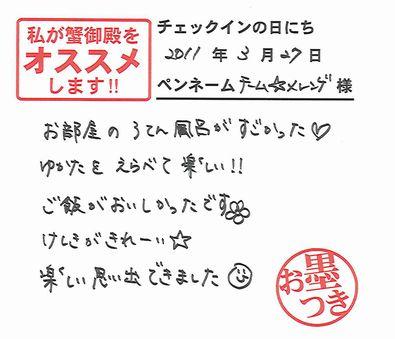 私が蟹御殿を
オススメ
します!!
チェックインの日にち
2011 年 3 月 27 日
ペンネーム チーム☆メレンゲ 様
お部屋の ろてん風呂がすごかった♡
ゆかたを えらべて 楽しい!!
ご飯がおいしかったです
けしきがきれーい☆
楽しい思い出できました
お墨つき